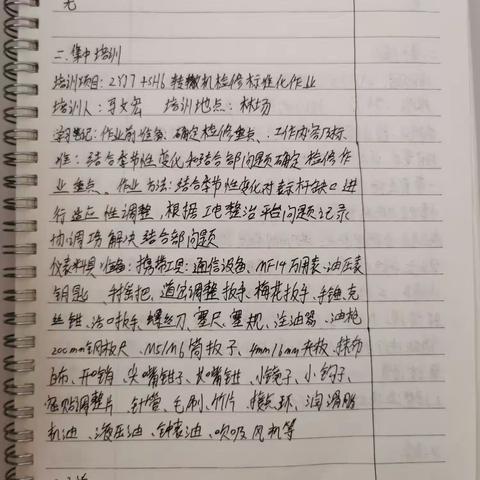 无
二.集中培训
培训项目：ZYJ7+SH6转辙机检修标准化作业
培训人：马文宏 培训地点：林场
学习笔记：作业前准备、确定检修重点、工作内容及标
准：结合季节性变化和结合部问题确定检修作
业重点、作业方法：结合季节性变化对表示杆缺口进
行适应性调整，根据工电整治平台问题记录
协调工务解决结合部问题
仪表料具准备：携带工具：通信设备、MF14万用表、油压表
钥匙 手摇把、道岔调整扳手、梅花扳手、手锤、克
丝钳、活口扳手、螺丝刀、塞尺、塞规、注油器、油枪
200mm钢板尺、M5/M6筒板子、4mm/6mm夹板、抹布
白布、开口销、尖嘴钳子、长嘴钳、小镜子、小钩子、
密贴调整片、针管、毛刷、竹片、接点环、润滑脂
机油、液压油、钟表油、吹吸风机等